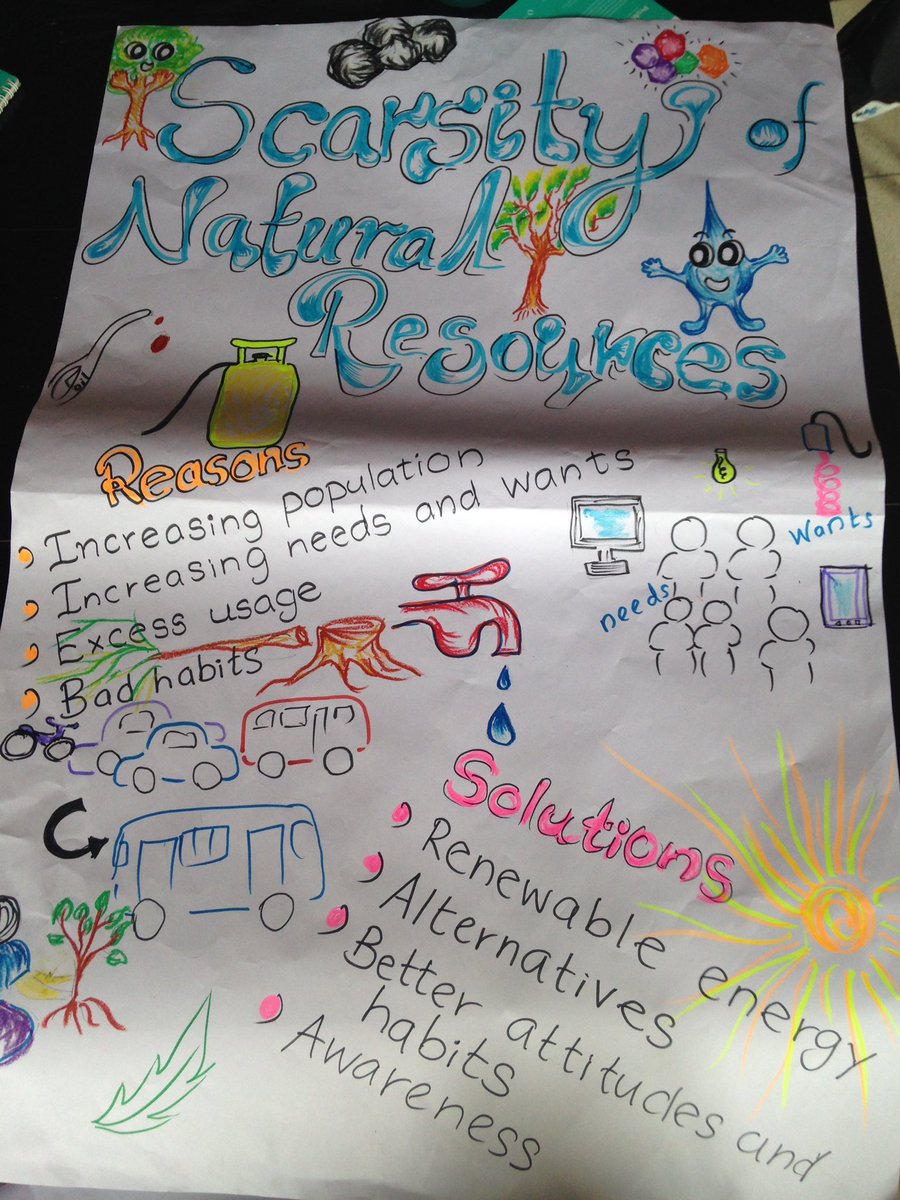 Scarsity of
Natural
Resources
Oil
Reasons
Increasing population
Increasing needs and wants
Excess usage
Bad habits
wants
needs
Solutions
Renewable energy
Alternatives
Better attitudes and
habits
Awareness